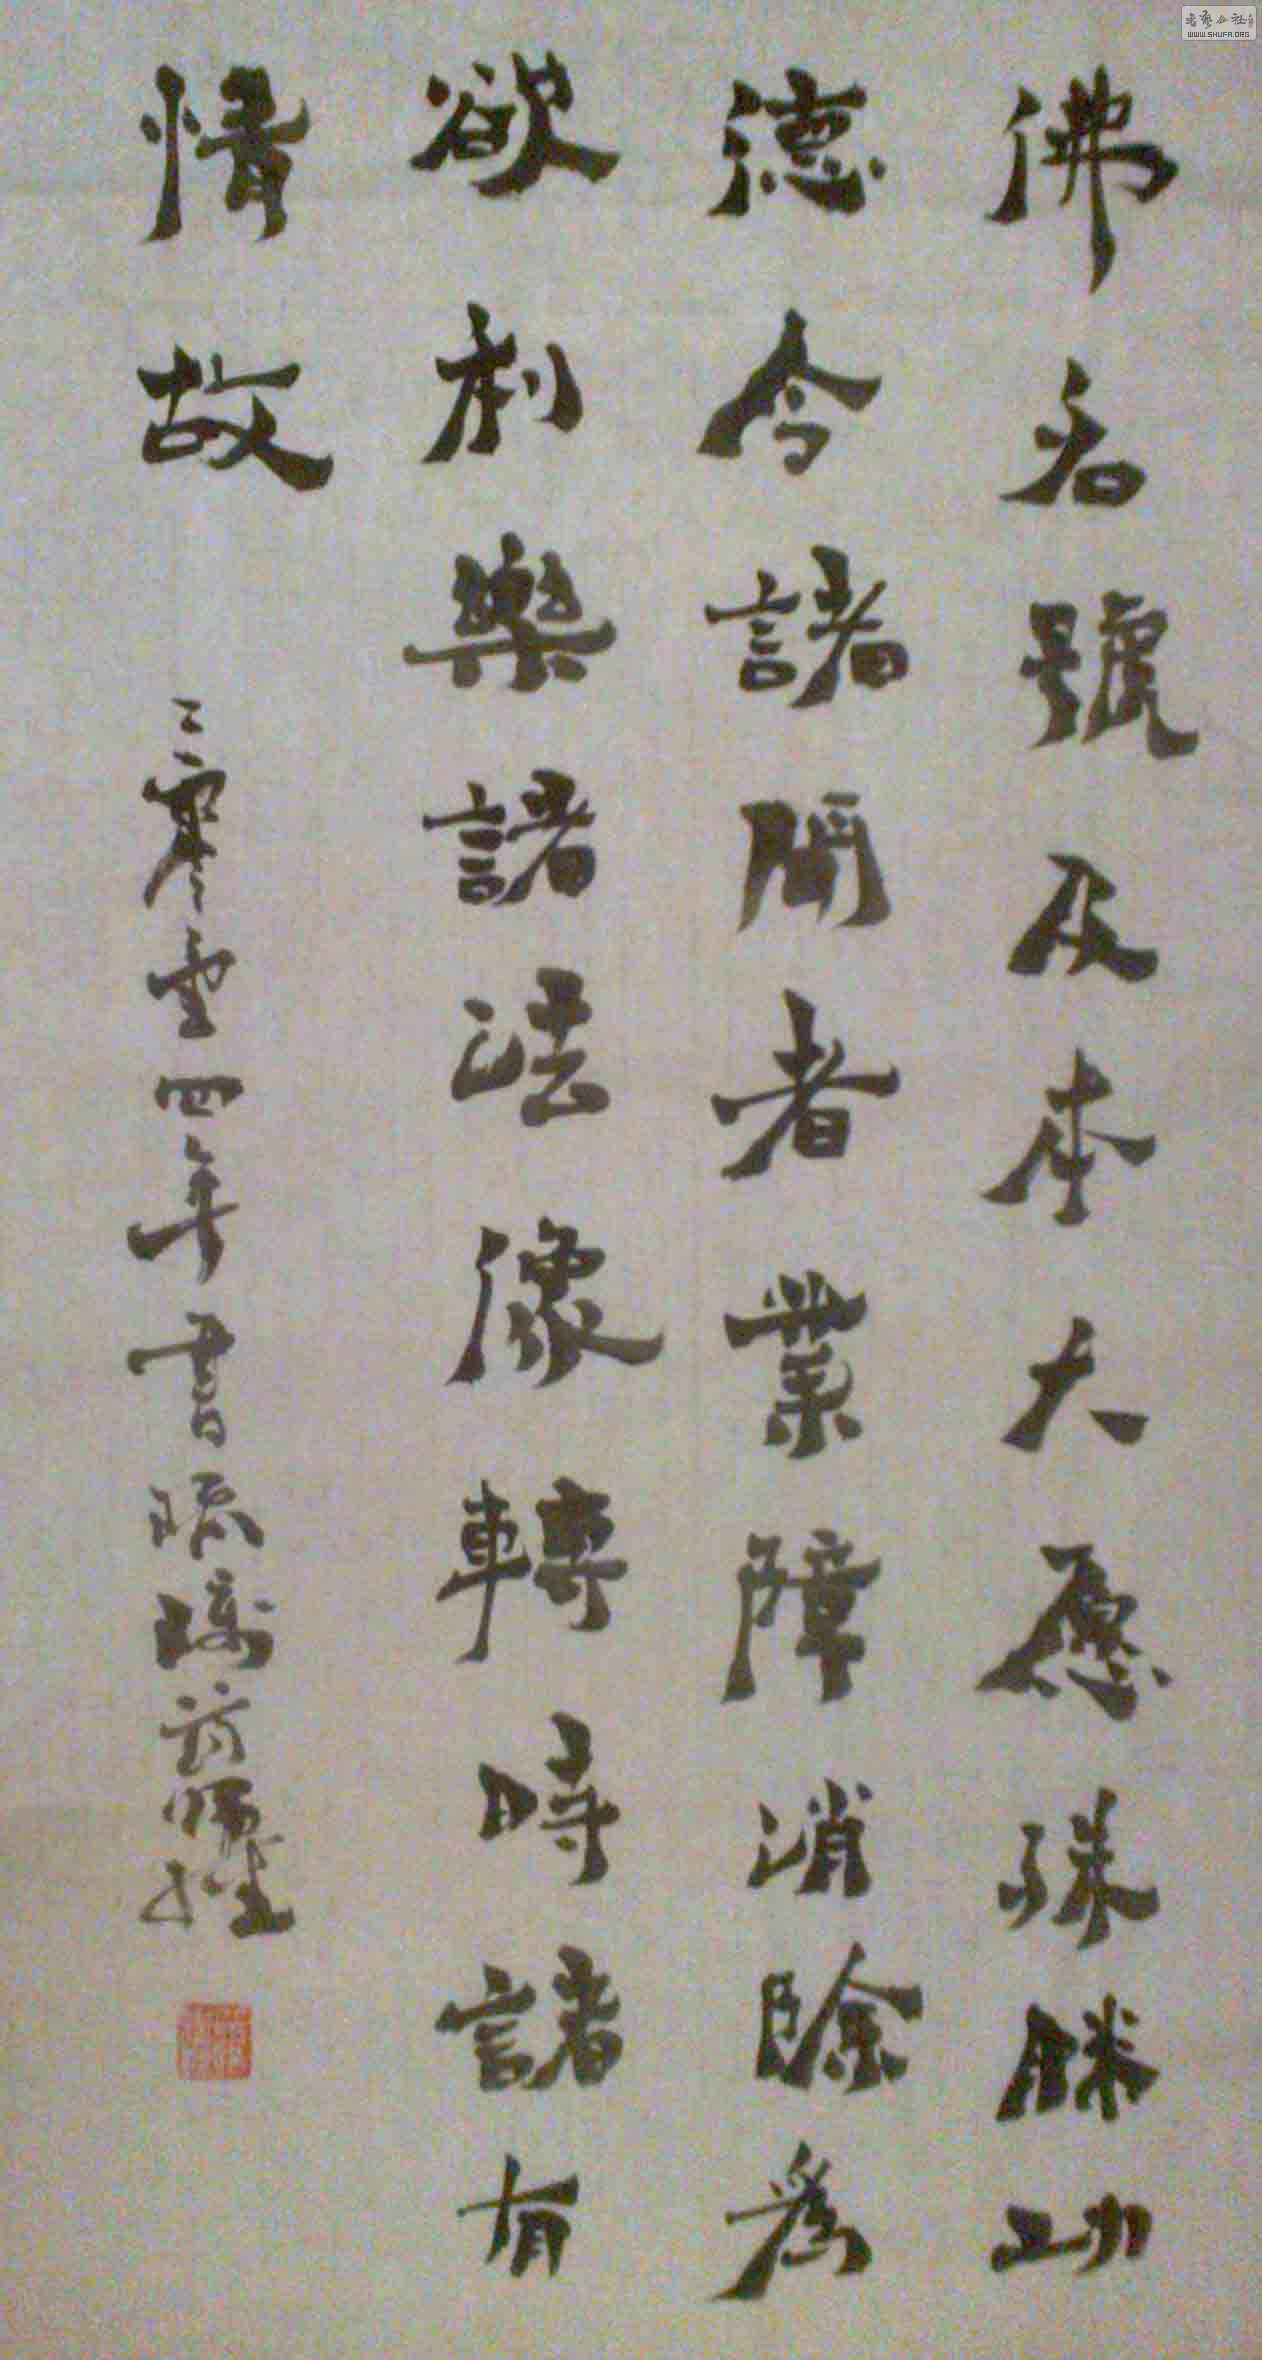 佛名號及本大愿殊勝功
德令諸聞者業障消除為
欲利樂諸法像轉時諸有
情故
二零壹四年書琉璃药師經
WWW.SHUFA.ORG